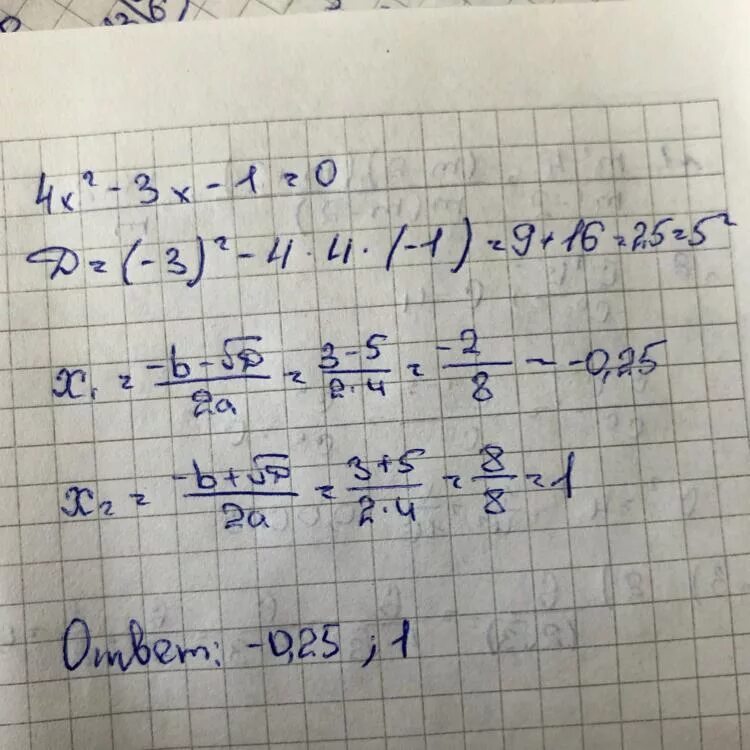 4x² - 3x - 1 = 0
D = (-3)² - 4 · 4 · (-1) = 9 + 16 = 25 = 5²
x₁ = (-b - √D)/(2a) = (3 - 5)/(2 · 4) = (-2)/8 - -0,25
x₂ = (-b + √D)/(2a) = (3 + 5)/(2 · 4) = 8/8 = 1
Ответ: -0,25 ; 1